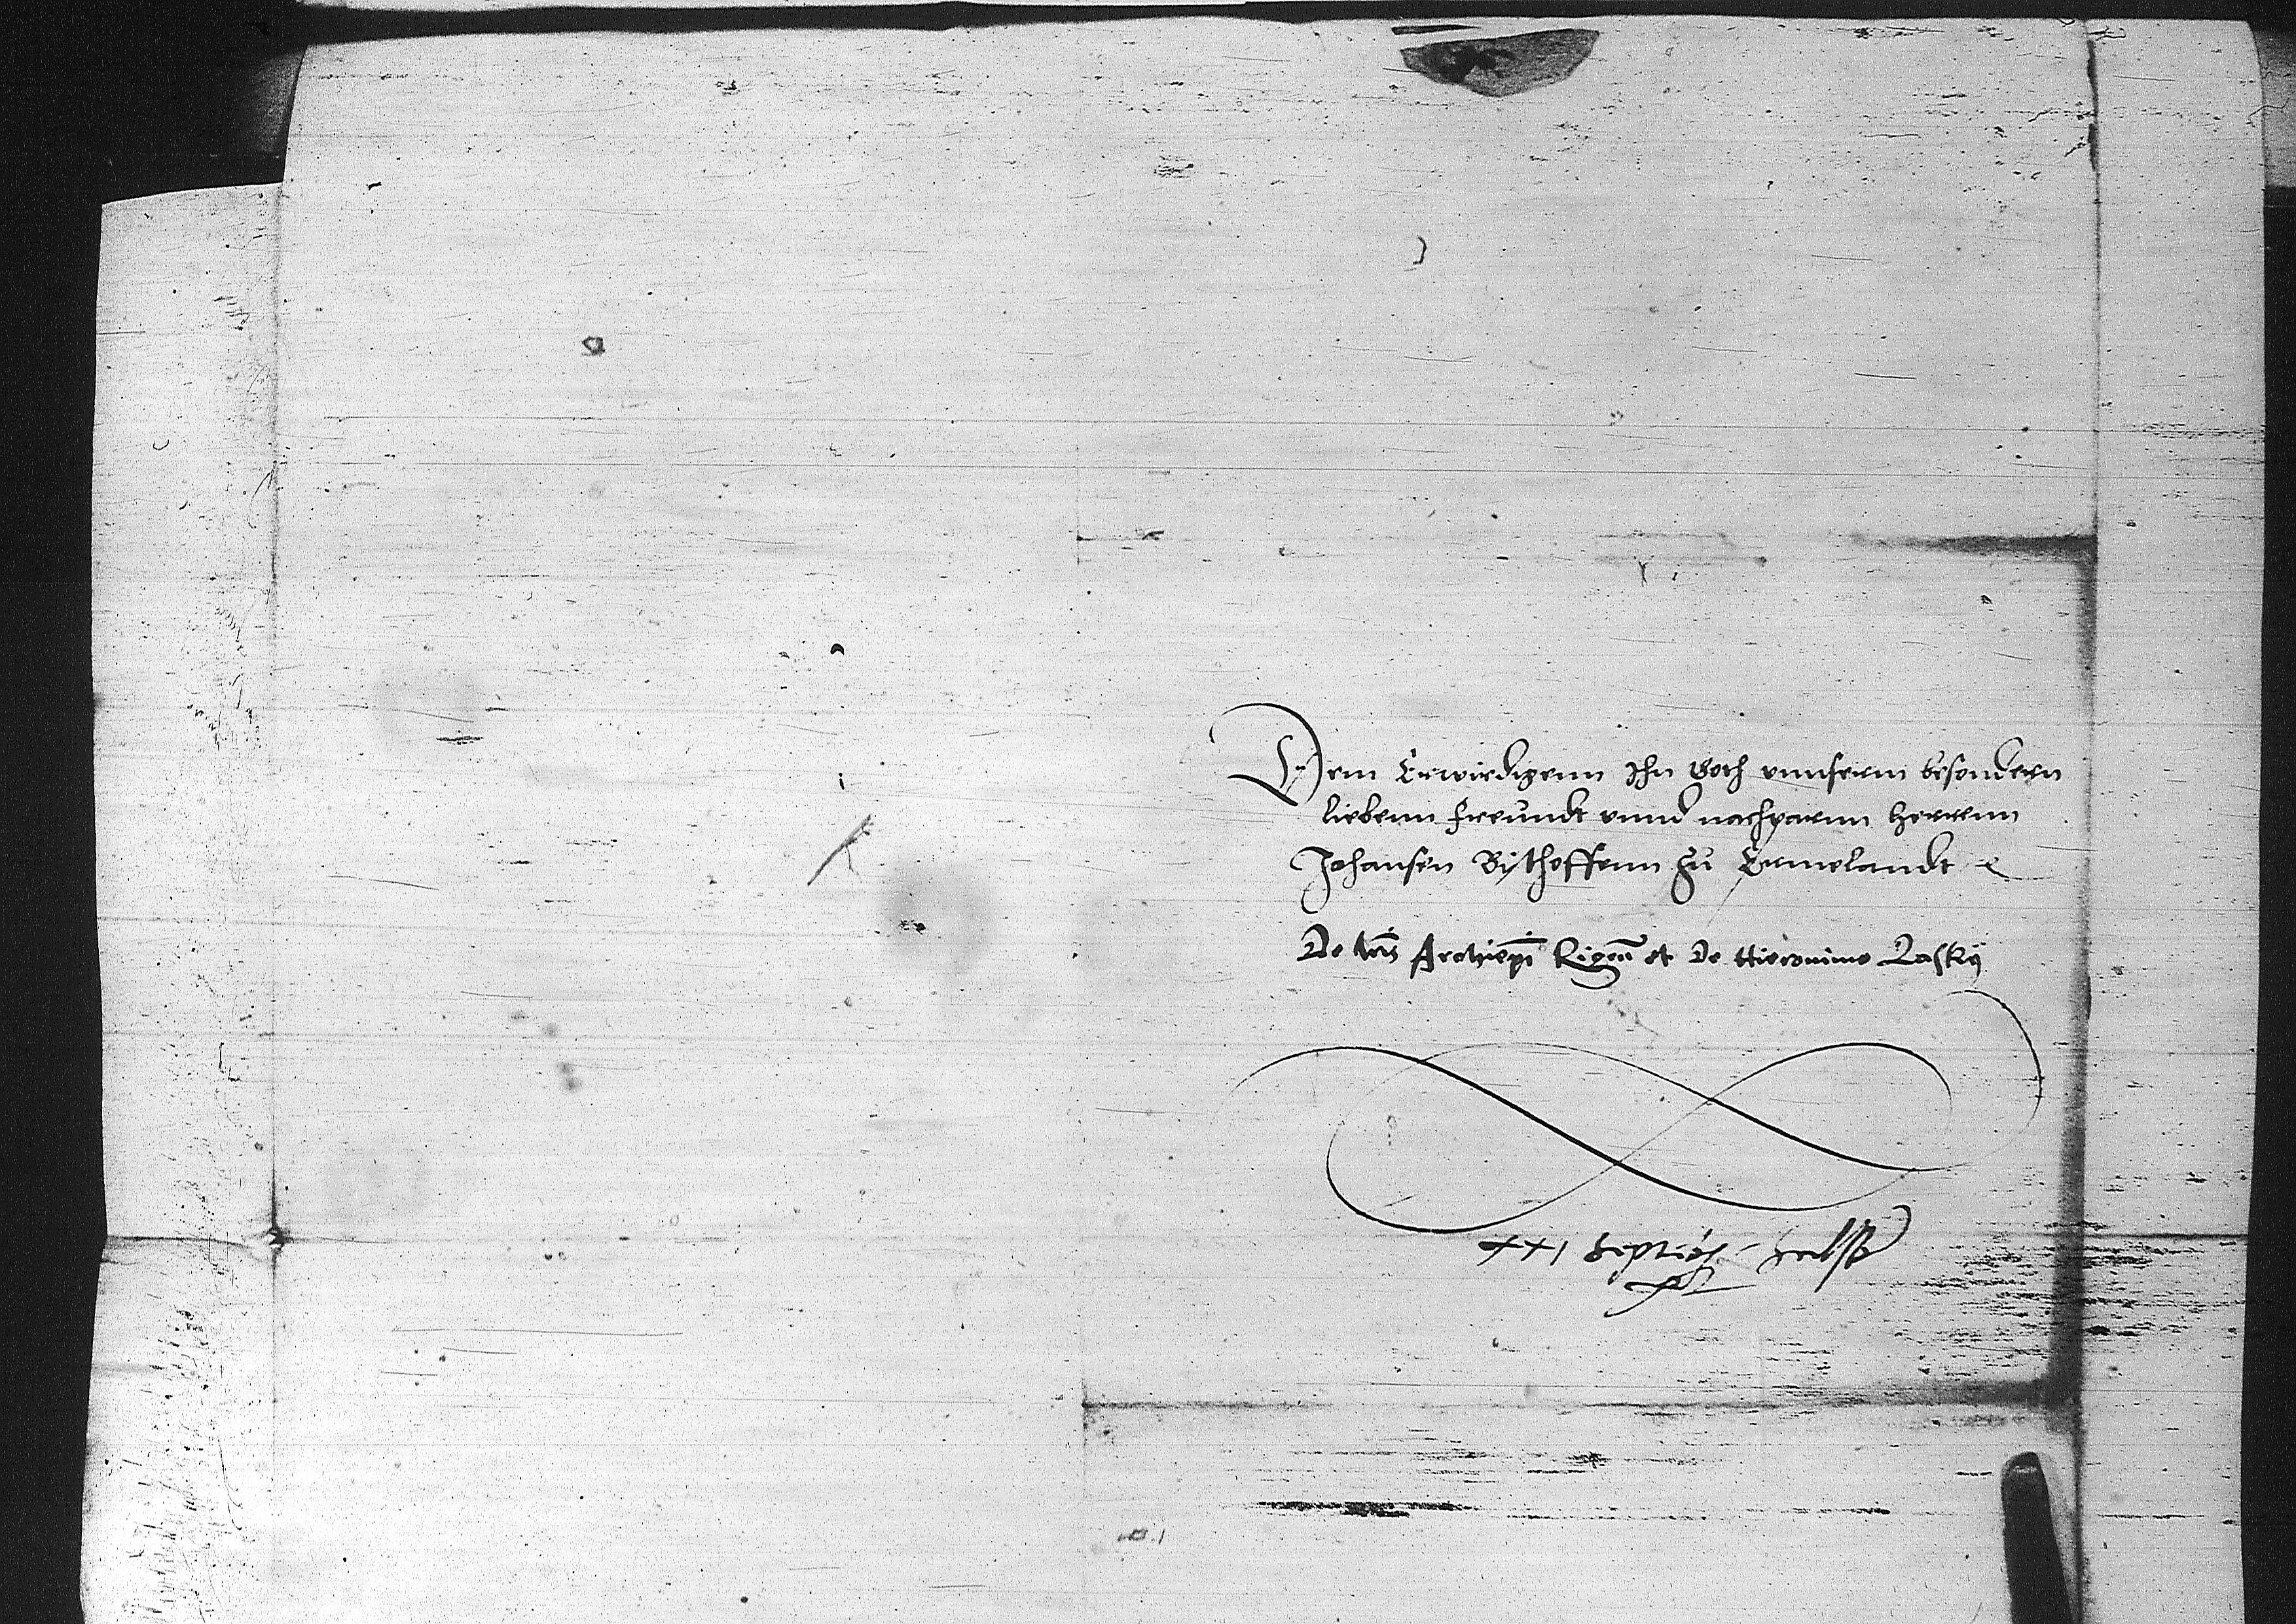 Dem Erwirdigenn Ihn Goth unnserm besondern
liebenn freundt unnd nachparnn herrenn
Johansen Bischoffenn zu Ermelandt
De lris Archiepi Rigen et De Hieronimo Lasky
XXI Septebr